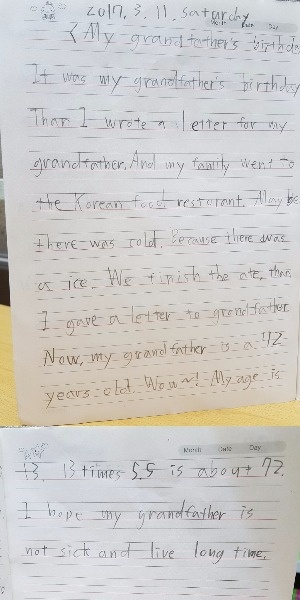 2017. 3. 11. Saturday
<My grandfather's birthday
It was my grandfather's birthday
Than I wrote a letter for my
grandfather. And my family went to
the Korean food restorant. May be
there was cold. Because there was
a ice. We finish the ate, than
I gave a letter to grandfather
Now, my grandfather is a 72
years old. Wow~! My age is
Month Date Day
13. 13 times 5.5 is about 72.
I hope my grandfather is
not sick and live long time.